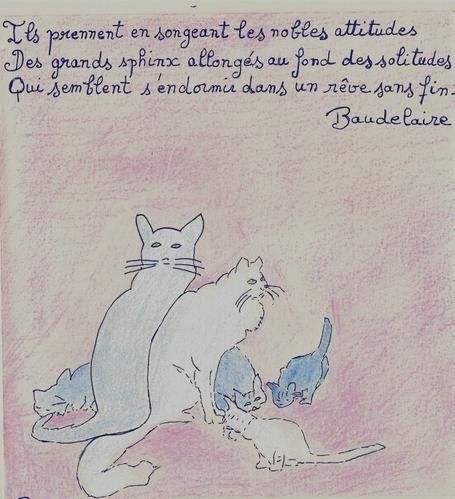 Ils prennent en songeant les nobles attitudes
Des grands sphinx allongés au fond des solitudes
Qui semblent s'endormir dans un rêve sans fin.
Baudelaire